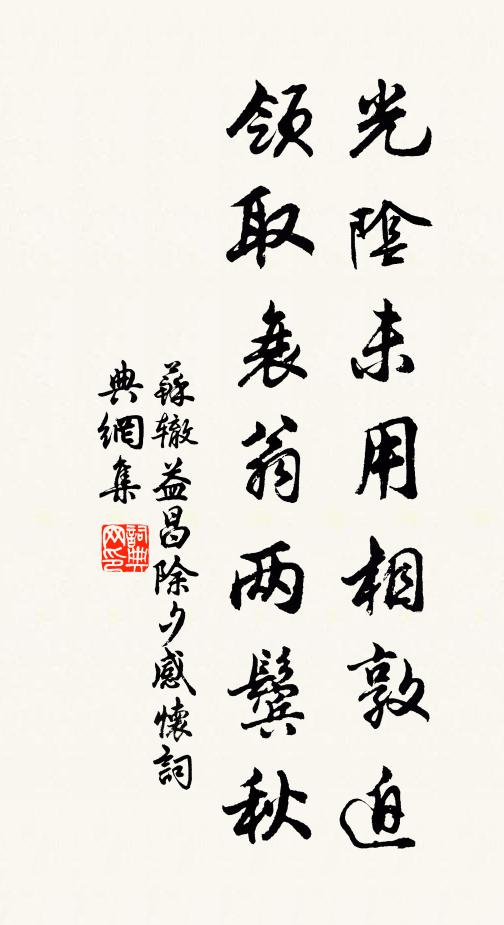 光陰未用相敦迫
領取衰翁两鬓秋
蘇辙益昌除夕感懷詞
典網集
詞典網印